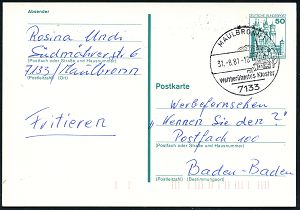 Absender
Rosina Undi
Südmährerstr. 6
(Straße und Hausnummer)
7133 / Maulbronn
(Postleitzahl) (Ort)
Fritieren
DEUTSCHE BUNDESPOST
50
MAULBRONN
31.-8.81-18
Weltberühmtes Kloster
7133
Postkarte
Werbefernsehen
"Kennen Sie den?"
Postfach 100
(Postfach oder Straße und Hausnummer)
Baden-Baden
(Postleitzahl) (Bestimmungsort)